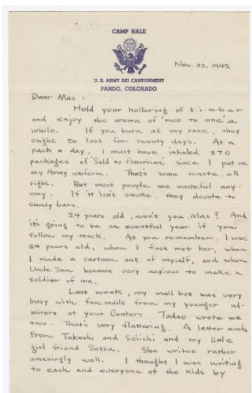 CAMP HALE
U. S. ARMY SKI CANTONMENT
PANDO, COLORADO
Nov. 22, 1942
Dear Mas:
Hold your hollering of t-i-m-b-e-r
and enjoy the aroma of "two to one" a
while. If you burn, at my rate, they
ought to last for twenty days. At a
pack a day, I must have inhaled 270
packages of "Sold to American" since I put on
my Army uniform. That's some waste, all
right. But most people are wasteful any-
way. If it isn't smoke, they devote to
candy bars.
24 years old, aren't you Mas? And
it's going to be an eventful year if you
follow my track. As you remember, I was
24 years old, when I first met her, when
I made a cartoon out of myself, and when
Uncle Sam became very anxious to make a
soldier of me.
Last week, my mail box was very
busy with fan mails from my younger ad-
mirers at your Center. Tadao wrote me
two. That's very flattering. A letter each
from Takeshi and Seiichi and my little
girl friend Setsu. She writes rather
amazingly well. I thought I was writing
to each and everyone of the kids by